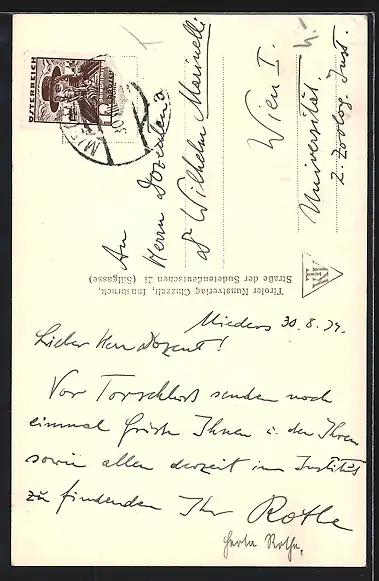 ÖSTERREICH
An
Herrn Dozenten
Dr Wilhelm Marinelli
Wien I.
Universität.
2. Zoolog. Inst.
Tiroler Kunstverlag Chizzali, Innsbruck,
Straße der Sudetendeutschen 21 (Sillgasse)
Mieders 30.8.34.
Lieber Herr Dozent!
Vor Torschluss senden noch
einmal Grüße Ihnen u. den Ihren
sowie allen derzeit im Institut
zu findenden Ihr Rothe
Herta Rothe.